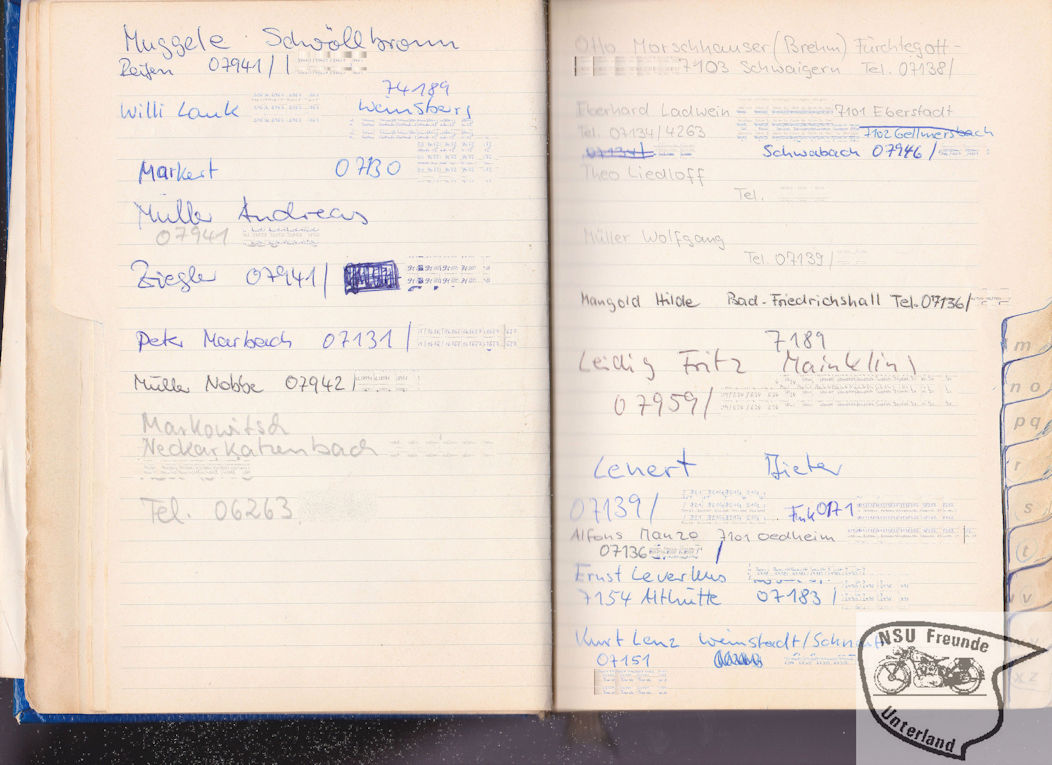 Muggele Schwöllbronn
Reifen 07941/
74189
Willi Lauk Weinsberg
Markert 07130
Müller Andreas
07941
Ziegler 07941/
Peter Marbach 07131/
Müller Nobbe 07942/
Markowitsch
Neckarkatzenbach
Tel. 06263
Otto Morschhauser (Brehm) Fürchtegott-
7103 Schwaigern Tel. 07138/
Eberhard Ladwein 7101 Eberstadt
Tel. 07134/4263 7102 Gellmersbach
07134/ Schwabach 07946/
Theo Liedloff
Tel.
Müller Wolfgang
Tel. 07139/
Mangold Hilde Bad-Friedrichshall Tel. 07136/
7189
Leidig Fritz Mainklin
07959/
Lenert Dieter
07139/ Funk 0171
Alfons Manzo 7101 Oedheim
07136 /
Ernst Leverkus
7154 Althütte 07183/
Kurt Lenz Weinstadt/Schnait
07151
m
n o
p q
r
s
t
v
x z
NSU Freunde
Unterland